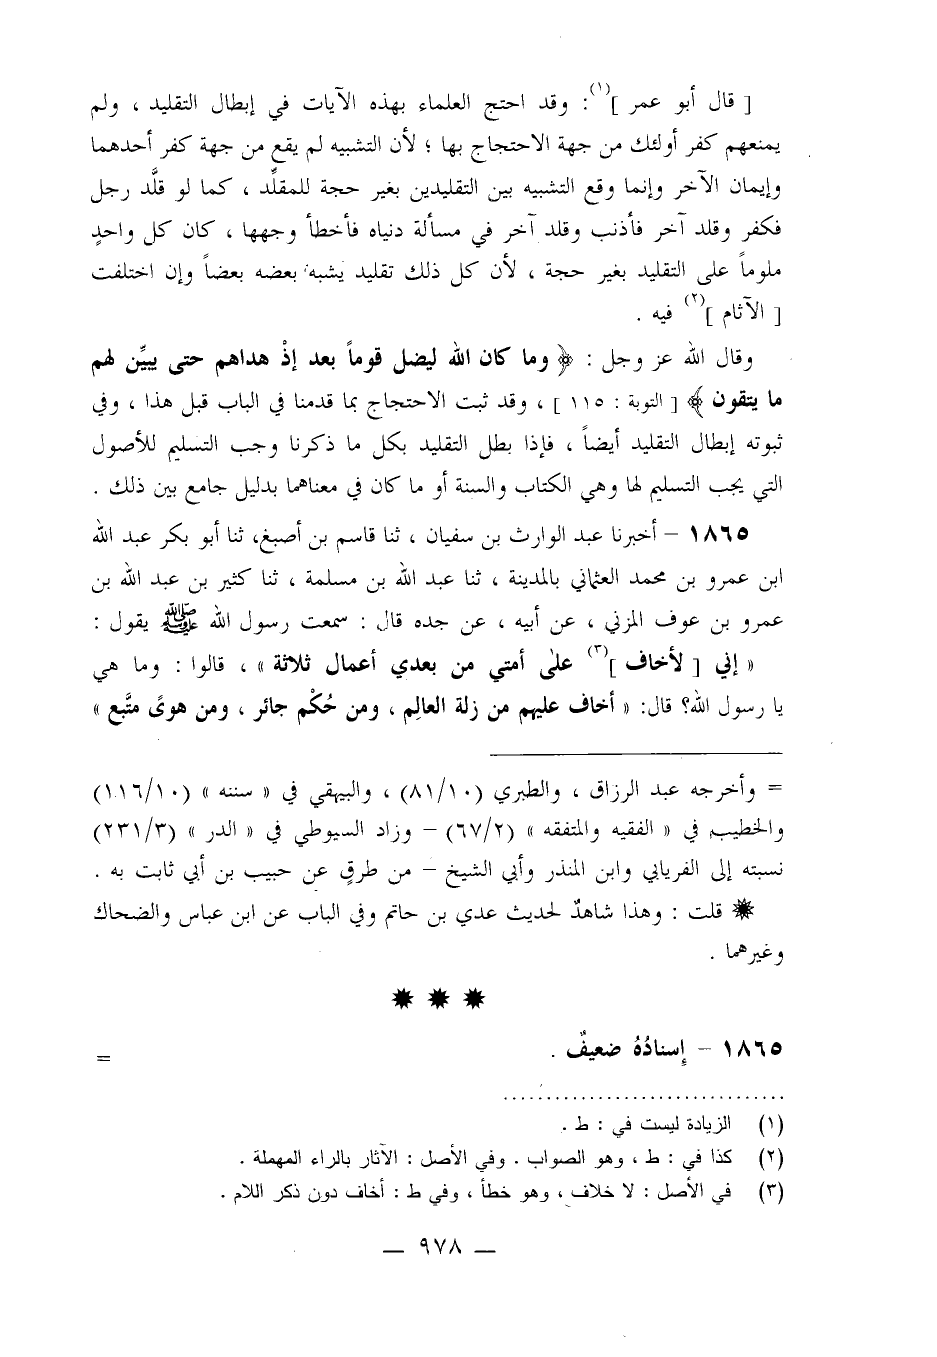 [ قال أبو عمر ](١): وقد احتج العلماء بهذه الآيات في إبطال التقليد ، ولم
يمنعهم كفر أولئك من جهة الاحتجاج بها ؛ لأن التشبيه لم يقع من جهة كفر أحدهما
وإيمان الآخر وإنما وقع التشبيه بين التقليدين بغير حجة للمقلِّد ، كما لو قلَّد رجل
فكفر وقلد آخر فأذنب وقلد آخر في مسألة دنياه فأخطأ وجهها ، كان كل واحدٍ
ملوماً على التقليد بغير حجة ، لأن كل ذلك تقليد يشبه بعضه بعضاً وإن اختلفت
[ الآثام ](٢) فيه .
وقال الله عز وجل : ﴿ وما كان الله ليضل قوماً بعد إذْ هداهم حتى يبيِّن لهم
ما يتقون ﴾ [ التوبة : ١١٥ ] ، وقد ثبت الاحتجاج بما قدمنا في الباب قبل هذا ، وفي
ثبوته إبطال التقليد أيضاً ، فإذا بطل التقليد بكل ما ذكرنا وجب التسليم للأصول
التي يجب التسليم لها وهي الكتاب والسنة أو ما كان في معناهما بدليل جامع بين ذلك .
١٨٦٥ – أخبرنا عبد الوارث بن سفيان ، ثنا قاسم بن أصبغ، ثنا أبو بكر عبد الله
ابن عمرو بن محمد العثماني بالمدينة ، ثنا عبد الله بن مسلمة ، ثنا كثير بن عبد الله بن
عمرو بن عوف المزني ، عن أبيه ، عن جده قال : سمعت رسول الله ﷺ يقول :
« إني [ لأخاف ](٣) على أمتي من بعدي أعمال ثلاثة » ، قالوا : وما هي
يا رسول الله؟ قال: « أخاف عليهم من زلة العالِم ، ومن حُكْم جائر ، ومن هوىً متَّبع »
= وأخرجه عبد الرزاق ، والطبري (٨١/١٠) ، والبيهقي في « سننه » (١١٦/١٠)
والخطيب في « الفقيه والمتفقه » (٦٧/٢) – وزاد السيوطي في « الدر » (٢٣١/٣)
نسبته إلى الفريابي وابن المنذر وأبي الشيخ – من طرقٍ عن حبيب بن أبي ثابت به .
✹ قلت : وهذا شاهدٌ لحديث عدي بن حاتم وفي الباب عن ابن عباس والضحاك
وغيرهما .
✹ ✹ ✹
١٨٦٥ – إسنادُهُ ضعيفٌ . =
(١) الزيادة ليست في : ط .
(٢) كذا في : ط ، وهو الصواب . وفي الأصل : الآثار بالراء المهملة .
(٣) في الأصل : لا خلاف ، وهو خطأ ، وفي ط : أخاف دون ذكر اللام .
— ٩٧٨ —